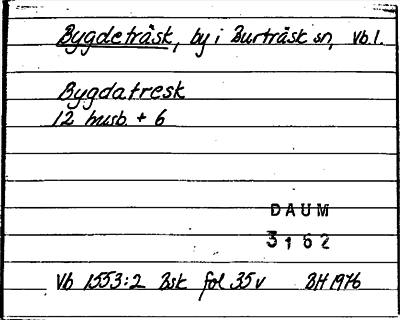 Bygdeträsk, by i Burträsk sn, Vb l.
Bygdatresk
12 husb. + 6
DAUM
3162
Vb 1553:2 Bsk fol 35v BH 1976